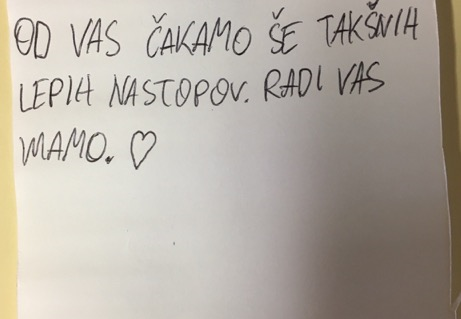 OD VAS ČAKAMO ŠE TAKŠNIH
LEPIH NASTOPOV. RADI VAS
MAMO. ♡